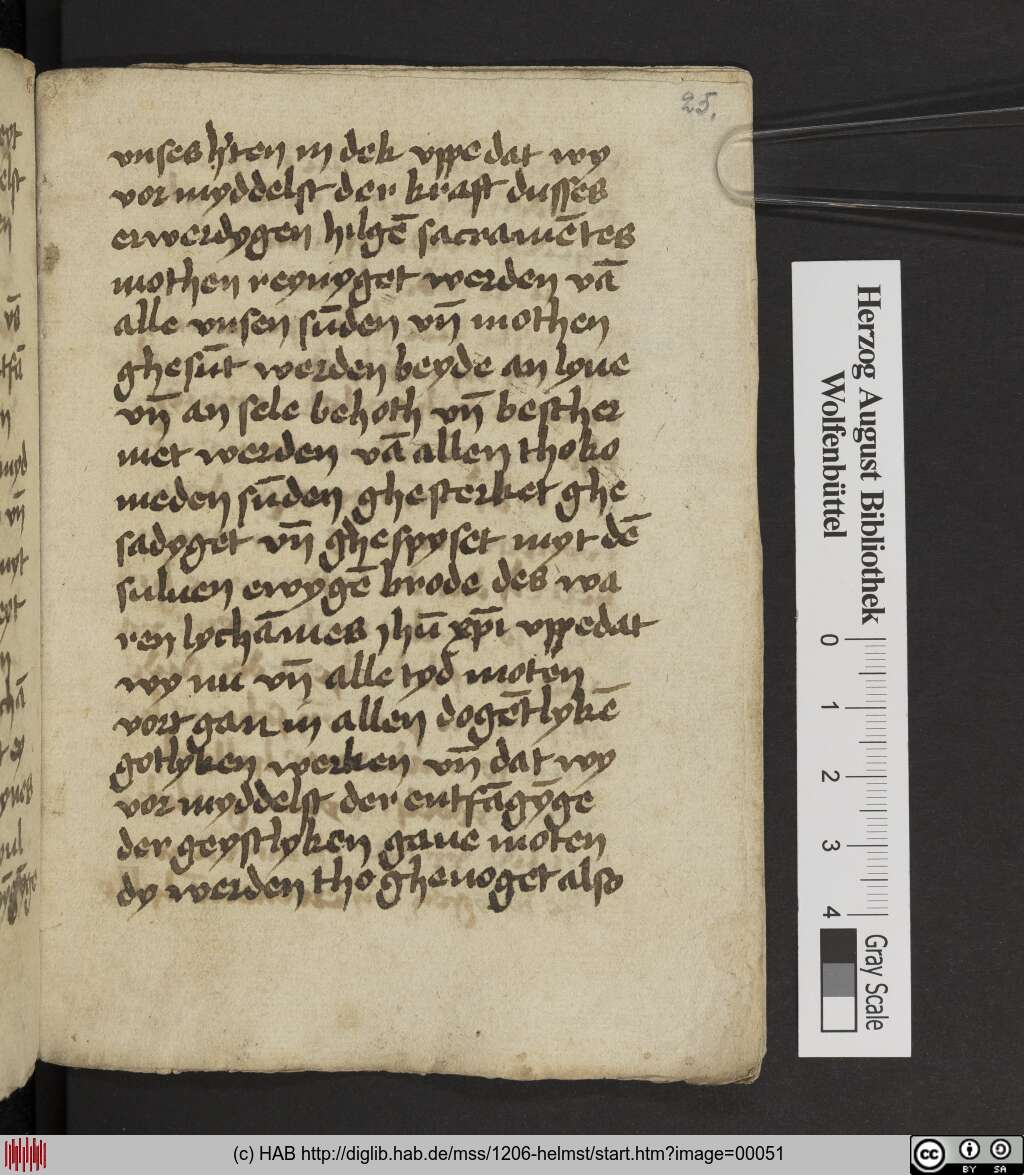 25.
vnses h'ten in dek vppe dat wy
vor myddelst der kraft dusses
erwerdygen hilgē sacramētes
mothen reynyget werden vā
alle vnsen sūden vn̄ mothen
ghesūt werden beyde an lyue
vn̄ an sele behoth vn̄ bescher
met werden vā allen thoko
meden sūden ghesterket ghe
sadyget vn̄ ghespyset myt dē
suluen ewygē brode des wa
ren lychāmes jhū xp̄i vppedat
wy nu vn̄ alle tyd moten
vort gan in allen dogētlykē
gotlyken werken vn̄ dat wy
vor myddelst der entfāgȳge
der geystlyken gaue moten
dy werden tho gheuoget also
Herzog August Bibliothek
Wolfenbüttel
0 1 2 3 4
Gray Scale
(c) HAB http://diglib.hab.de/mss/1206-helmst/start.htm?image=00051
cc BY SA